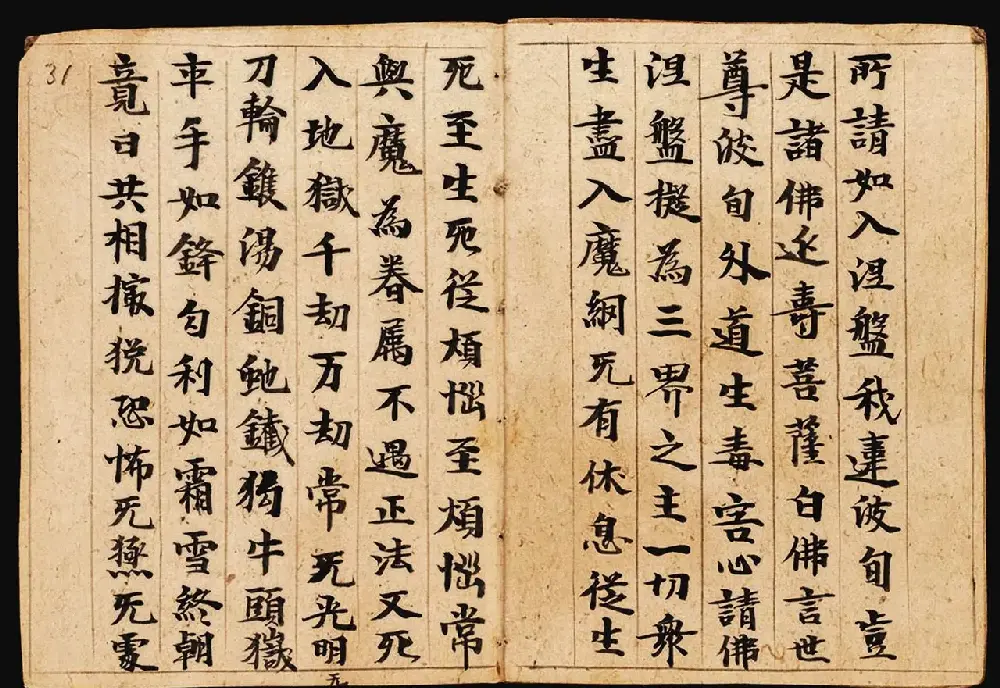 所請如入涅盤我違波旬豈
是諸佛迩壽菩薩白佛言世
尊波旬外道生毒害心請佛
涅盤擬為三界之主一切衆
生盡入魔網无有休息從生
死至生死從煩惱至煩惱常
與魔為眷属不遇正法又死
入地獄千劫万劫常无光明
无
刀輪鑊湯銅虵鐵獨牛頭獄
手如鋒勾利如霜雪終朝
竟日共相恐怖无无處
31